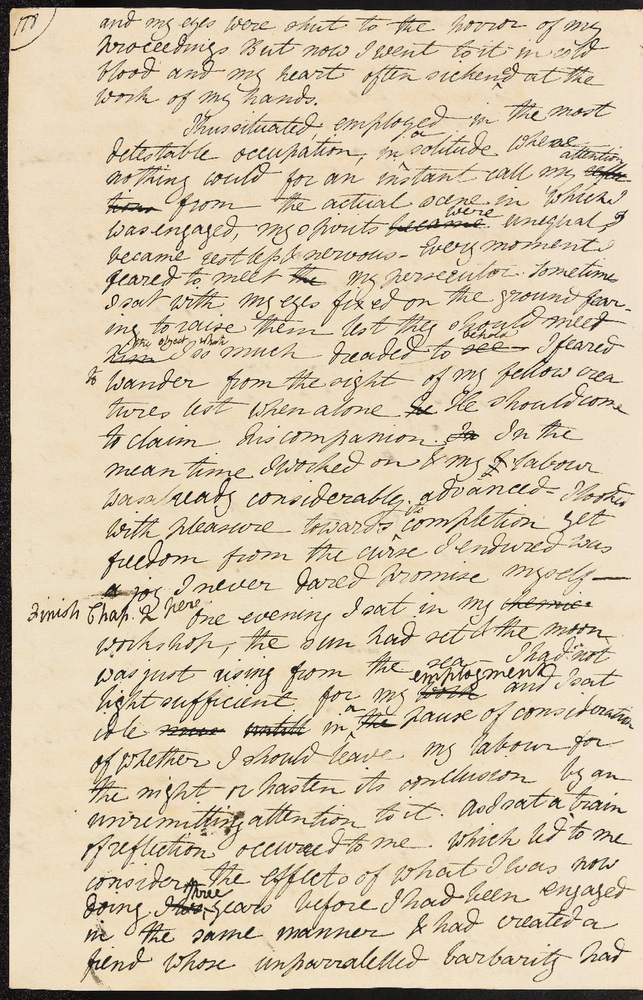 178
and my eyes were shut to the horror of my
proceedings. But now I went to it in cold
blood and my heart often sickened at the
work of my hands.
Thus situated, employed in the most
detestable occupation, in a solitude where
nothing could for an instant call my attention
from the actual scene in which I
was engaged, my spirits became were unequal, I
became restless & nervous - Every moment I
feared to meet the my persecutor. Sometime
I sat with my eyes fixed on the ground fear-
ing to raise them lest they should meet
him the object which I so much dreaded to see behold I feared
to wander from the sight of my fellow crea
tures lest when alone he He should come
to claim his companion In In the
mean time I worked on & my labour
was already considerably advanced - I looked
with pleasure towards its completion yet
freedom from the curse I endured was
a joy I never dared promise myself —
Finish Chap. 2 here One evening I sat in my
workshop, the sun had set & the moon
was just rising from the sea - I had not
light sufficient for my work employment and I sat
idle in a the pause of consideration
of whether I should leave my labour for
the night or hasten its conclusion by an
unremitting attention to it. As I sat a train
of reflection occurred to me. Which led to me
consider the effects of what I was now
doing. Three years before I had been engaged
in the same manner & had created a
fiend whose unparralelled barbarity had